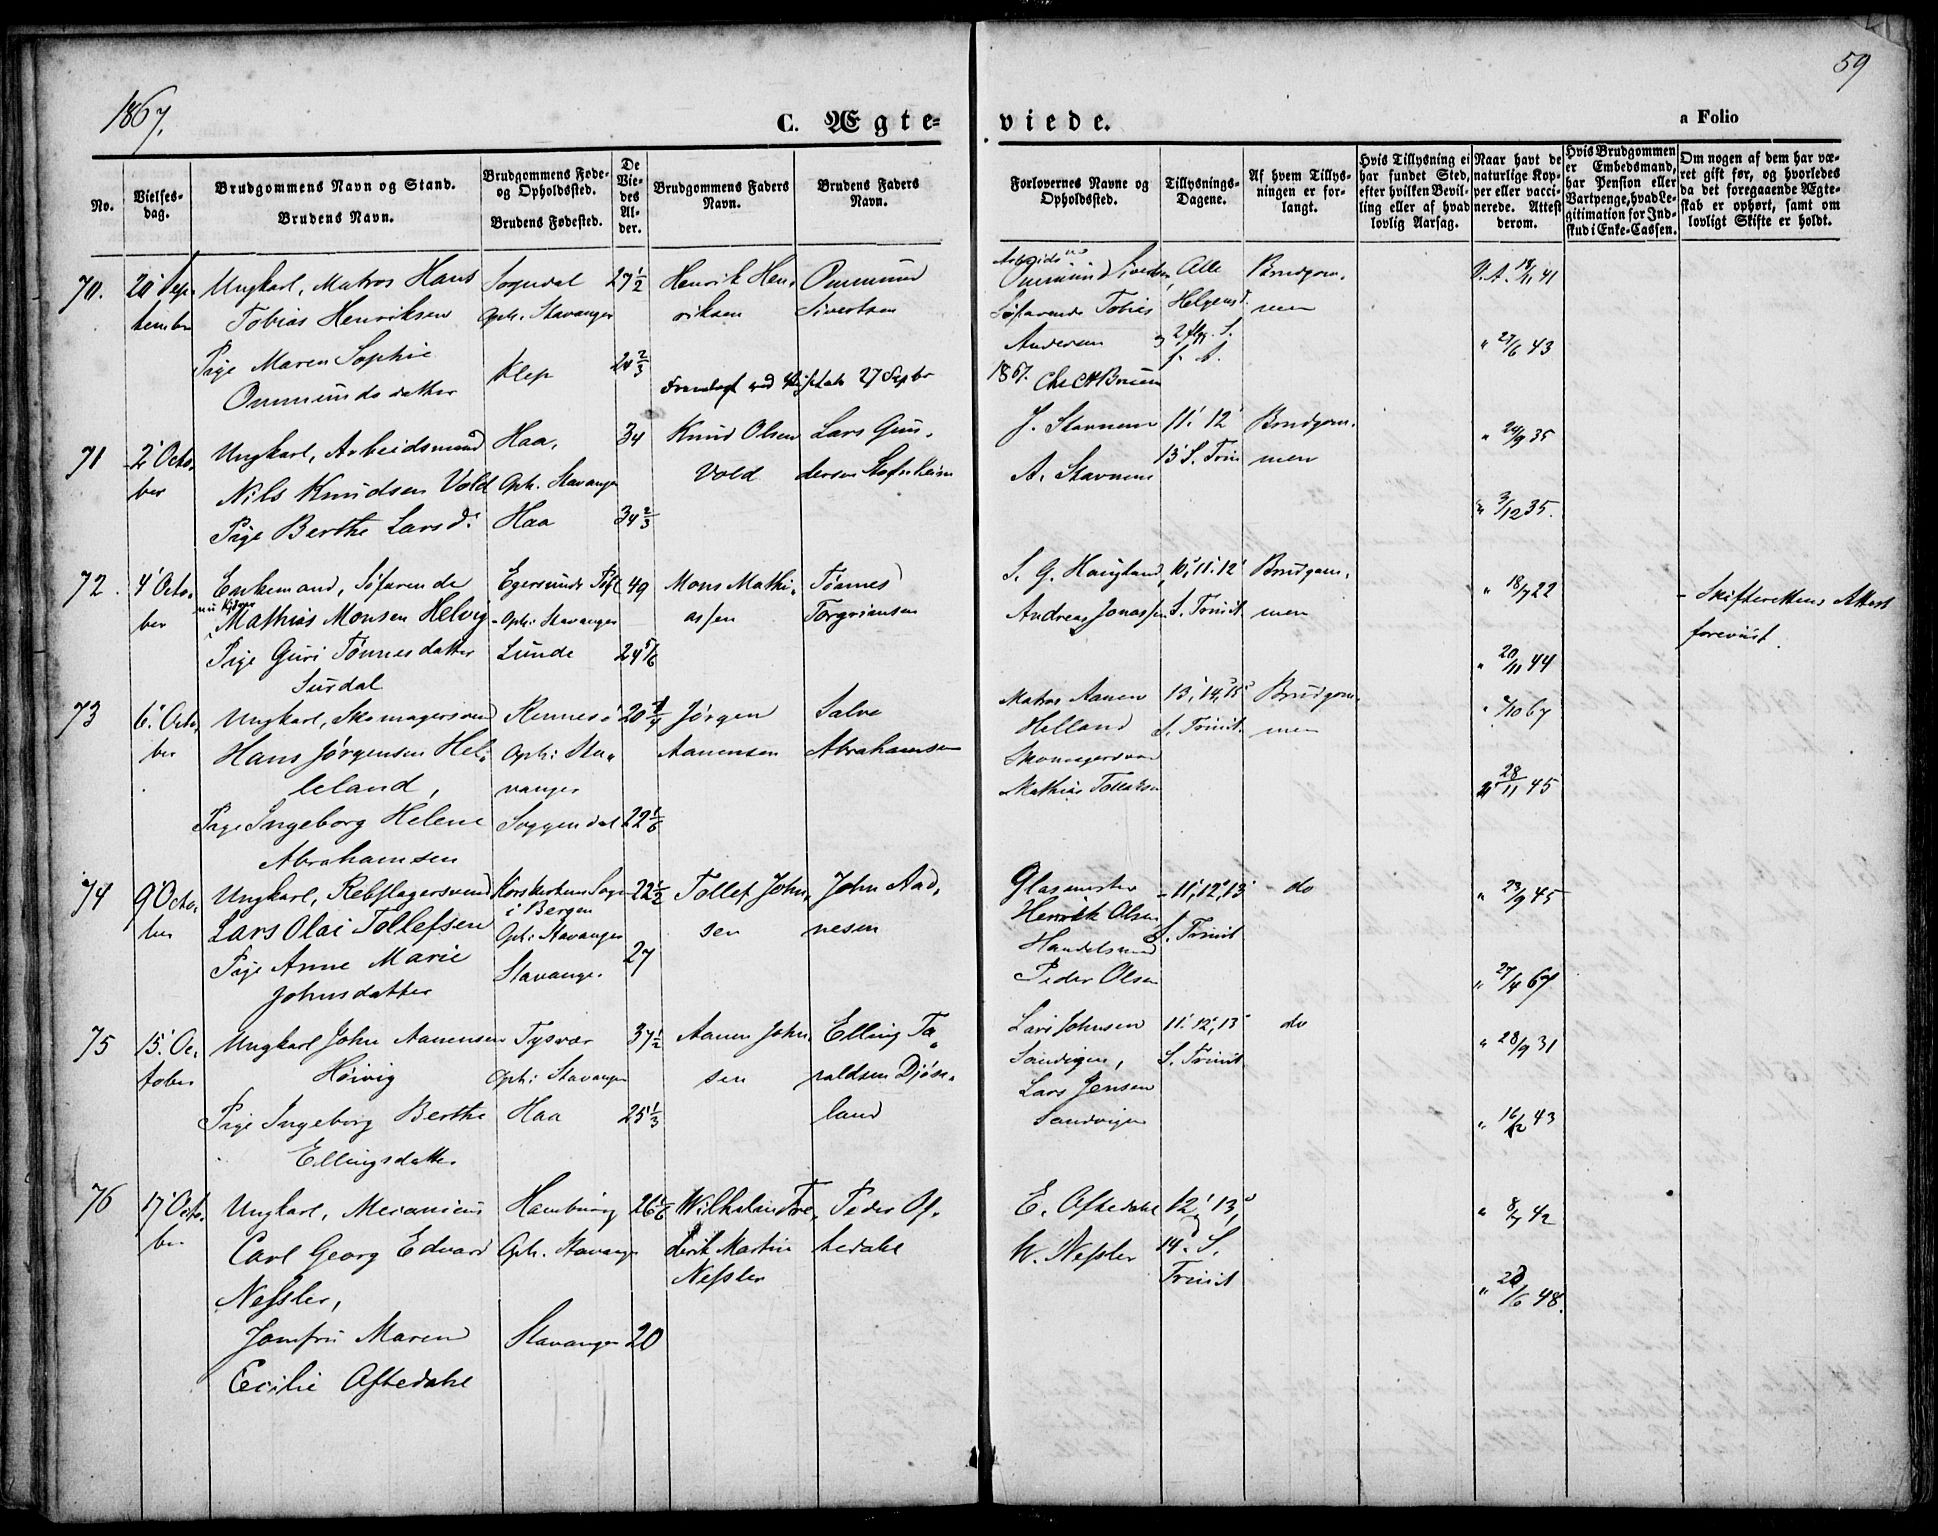 1867.
59
C. Ægteviede.
a Folio
No.
Vielsesdag.
Brudgommens Navn og Stand.
Brudens Navn.
Brudgommens Føde- og Opholdssted.
Brudens Fødested.
De Viedes Alder.
Brudgommens Faders Navn.
Brudens Faders Navn.
Forlovernes Navne og Opholdssted.
Tillysnings-Dagene.
Af hvem Tillysningen er forlangt.
Hvis Tillysning ei har fundet Sted, efter hvilken Bevilling eller af hvad lovlig Aarsag.
Naar havt de naturlige Kopper eller vaccinerede. Attest derom.
Hvis Brudgommen er Embedsmand, har Pension eller Vartpenge, hvad Legitimation for Indskud i Enke-Cassen.
Om nogen af dem har været gift før, og hvorledes da det foregaaende Ægteskab er ophørt, samt om lovligt Skifte er holdt.
70. 20 September Ungkarl, Matros Hans Sogndal 27 1/2 Henrik Hen- Ommund
Tobias Henriksen Oph. Stavanger riksen Sivertsen
Pige Maren Sophie Klep 24 2/3
Ommundsdatter
Ommund Sivertsen, Alle Brudgom-
Søfarende Tobias Helgens d. men
Andersen
V. A. 18/11 41
" 27/6 43
27 Septbr
1867.
71 2 October Ungkarl, Arbeidsmand Haa, 34 Knud Olsen Lars Gun-
Nils Knudsen Vold Oph. Stavanger Vold dersen
Pige Berthe Larsd. Haa 34 2/3
J. Stavnem 11' 12' Brudgom-
A. Stavnem 13 S. Trin men
" 24/9 35
" 3/12 35.
72. 4 October Enkemand, Søfarende Egersunds 49 Mons Mathi- Tønnes
Mathias Monsen Helvig Oph: Stavanger assen Torgrimsen
Pige Guri Tønnesdatter Lunde 24 5/6
Surdal
S. G. Haugland 10, 11. 12' Brudgom-
Andreas Jonassen S. Trinit. men
" 18/7 22
" 20/11 44
- Skifterettens Attest
foreviist.
73 6 October Ungkarl, Skomagersvend Rennesø 20 Jørgen Salve
Hans Jørgensen Hel- Oph: Sta- Aanensen Abrahamsen
leland, vanger
Pige Ingeborg Helene Soggendal 22 1/6
Abrahamsen
Matros Aanen 13, 14, 15 Brudgom-
Helland S. Trinit. men
Skomagersvend
Mathias
28/11 45
74 9 October Ungkarl, Rebslagersvend Korskirkens Sogn 22 1/2 Tollef John- John Aad-
i Bergen
Lars Olai Tollefsen Oph: Stavanger sen nesen
Pige Anne Marie Stavanger 27
Johnsdatter
Glasmester - 11, 12, 13 - do
Henrik Olsen S. Trinit
Handelsmand
Peder Olsen
" 23/9 45
" 27/4 67
75 15. October Ungkarl John Aanensen Tysvær 37 1/2 Aanen John- Elling Ta-
Høivig Oph: Stavanger sen raldsen Djøse-
Pige Ingeborg Berthe Haa 25 1/3 land
Ellingsdatter
Lars Johnsen 11. 12, 13 do
Sandvigen, S. Trinit
Lars Jensen
Sandvigen
" 28/9 31
" 16/12 43
76 17 October Ungkarl, Mecanicus Hamburg 26 Wilhelm Fre- Peder Af-
Carl Georg Edvard Oph. Stavanger derik Martin tedahl
Nessler, Nessler
Jomfru Maren Stavanger 20
Cecilie Aftedahl
E. Aftedahl 12, 13,
W. Nessler 14. S.
Trinit
" 8/7 42
" 48.